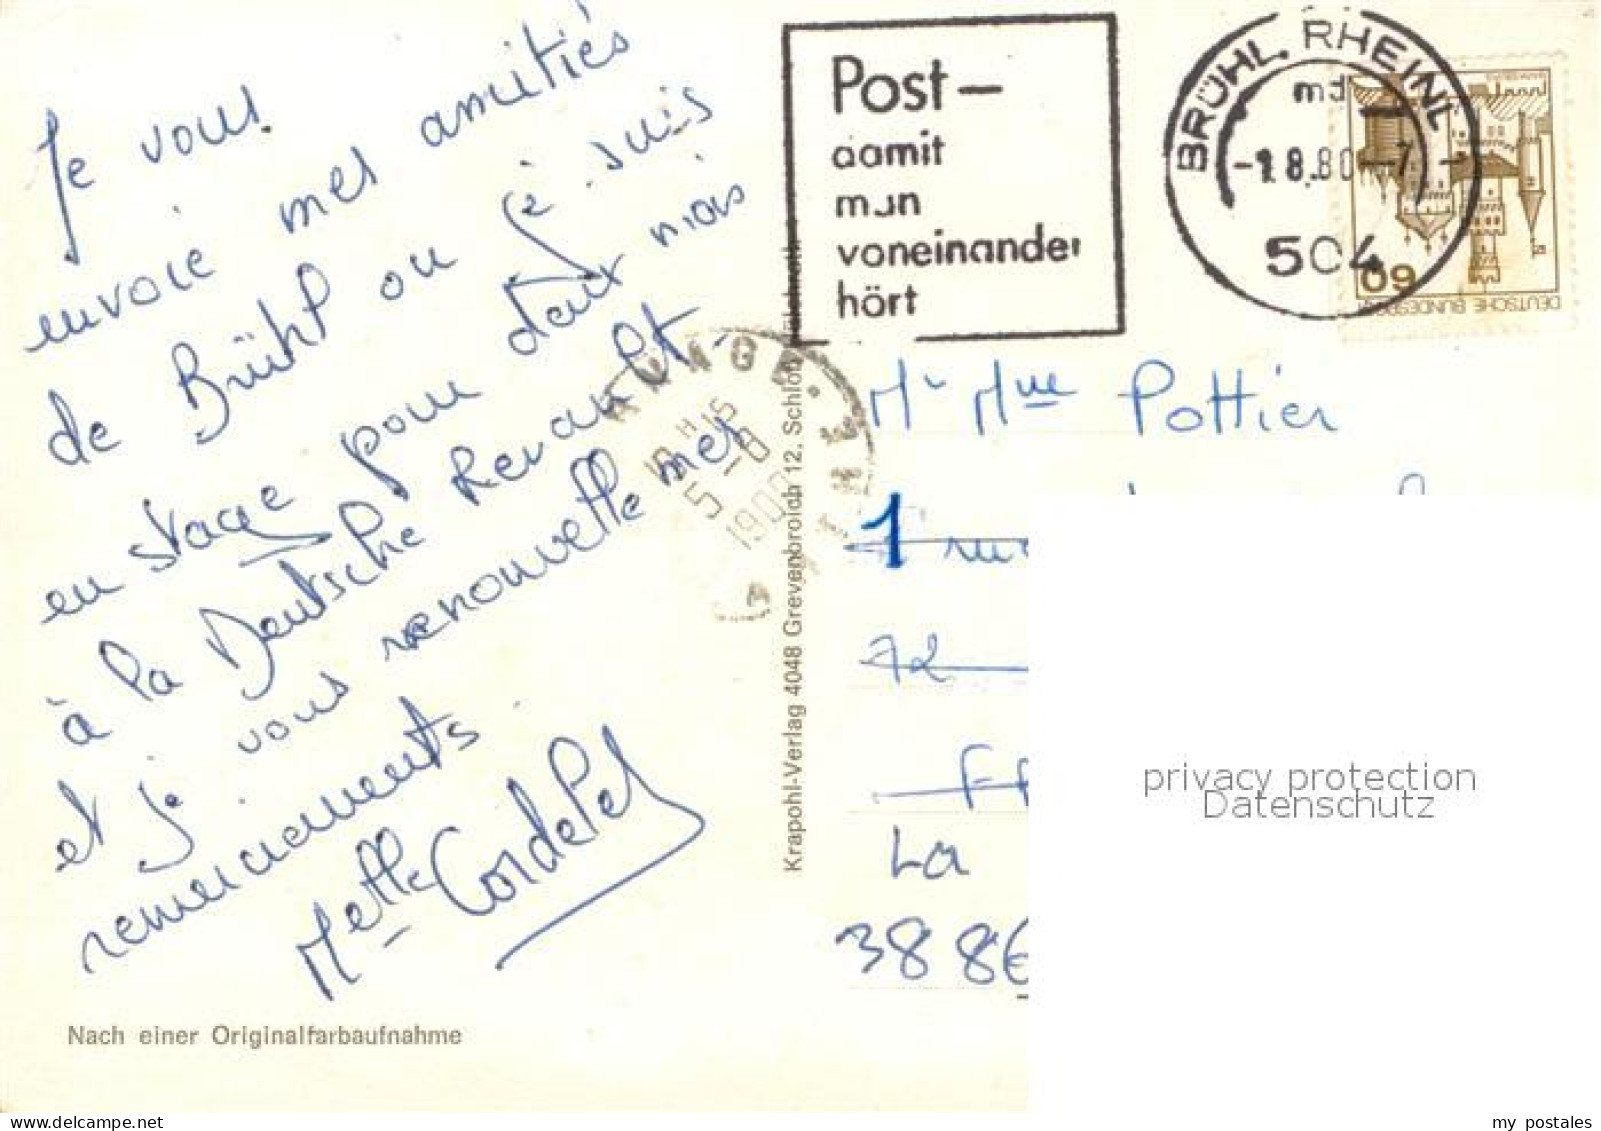 Je vous
envoie mes amitiés
de Brühl ou je suis
en stage pour deux mois
à la Deutsche Renault
et je vous renouvelle mes
remerciements.
Melle Cordelet
Nach einer Originalfarbaufnahme
Krapohl-Verlag 4048 Grevenbroich 12, Schloß
Post-
damit
man
voneinander
hört
BRÜHL, RHEINL
md
-1.8.80-7
504
60
DEUTSCHE BUNDESPOST
16 H 15
5-8
1980
Mr Mme Pottier
1 rue
72
La
38
privacy protection
Datenschutz
my postales